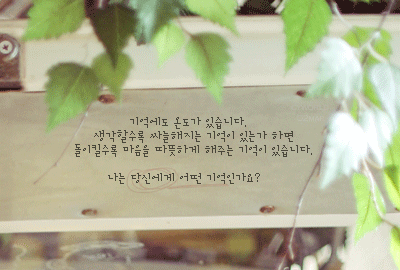 기억에도 온도가 있습니다.
생각할수록 싸늘해지는 기억이 있는가 하면
돌이킬수록 마음을 따뜻하게 해주는 기억이 있습니다.
나는 당신에게 어떤 기억인가요?